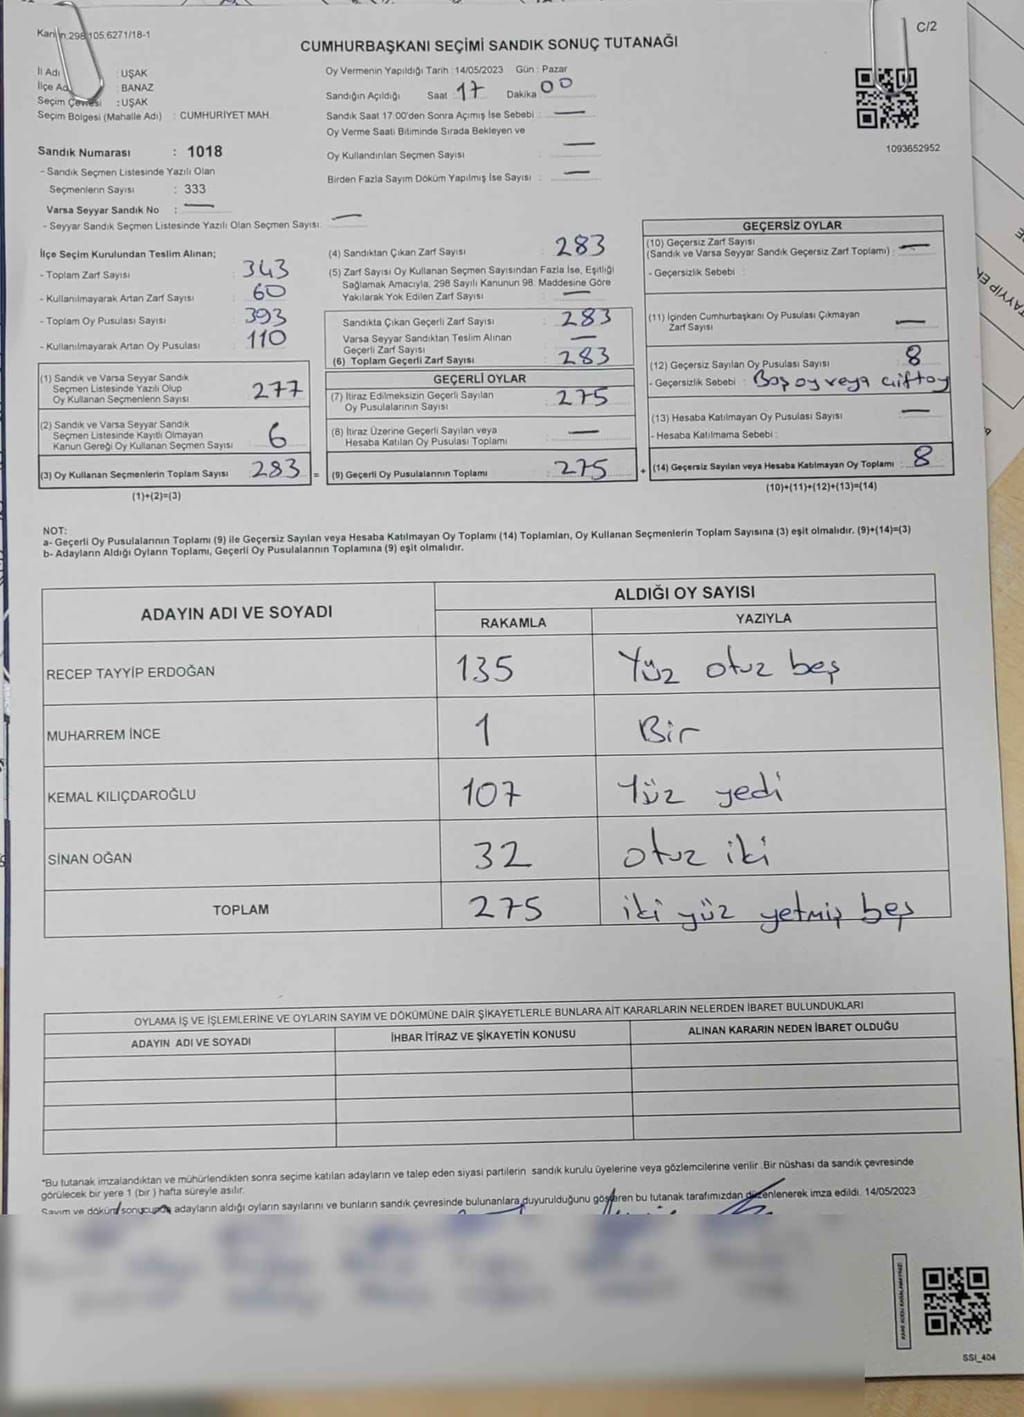 C/2
CUMHURBAŞKANI SEÇİMİ SANDIK SONUÇ TUTANAĞI
İl Adı : UŞAK
: BANAZ
Seçim Çevresi : UŞAK
Seçim Bölgesi (Mahalle Adı) : CUMHURİYET MAH.
Sandık Numarası : 1018
- Sandık Seçmen Listesinde Yazılı Olan
Seçmenlerin Sayısı : 333
Varsa Seyyar Sandık No : —
- Seyyar Sandık Seçmen Listesinde Yazılı Olan Seçmen Sayısı : —
Oy Vermenin Yapıldığı Tarih : 14/05/2023 Gün : Pazar
Sandığın Açıldığı Saat 17 Dakika 00
Sandık Saat 17:00'den Sonra Açımış İse Sebebi : —
Oy Verme Saati Bitiminde Sırada Bekleyen ve
Oy Kullandırılan Seçmen Sayısı : —
Birden Fazla Sayım Döküm Yapılmış İse Sayısı : —
1093652952
İlçe Seçim Kurulundan Teslim Alınan;
- Toplam Zarf Sayısı : 343
- Kullanılmayarak Artan Zarf Sayısı : 60
- Toplam Oy Pusulası Sayısı : 393
- Kullanılmayarak Artan Oy Pusulası : 110
(1) Sandık ve Varsa Seyyar Sandık
Seçmen Listesinde Yazılı Olup
Oy Kullanan Seçmenlerin Sayısı : 277
(2) Sandık ve Varsa Seyyar Sandık
Seçmen Listesinde Kayıtlı Olmayan
Kanun Gereği Oy Kullanan Seçmen Sayısı : 6
(3) Oy Kullanan Seçmenlerin Toplam Sayısı : 283 =
(1)+(2)=(3)
(4) Sandıktan Çıkan Zarf Sayısı : 283
(5) Zarf Sayısı Oy Kullanan Seçmen Sayısından Fazla İse, Eşitliği
Sağlamak Amacıyla, 298 Sayılı Kanunun 98. Maddesine Göre
Yakılarak Yok Edilen Zarf Sayısı : —
Sandıkta Çıkan Geçerli Zarf Sayısı : 283
Varsa Seyyar Sandıktan Teslim Alınan
Geçerli Zarf Sayısı : —
(6) Toplam Geçerli Zarf Sayısı : 283
GEÇERLİ OYLAR
(7) İtiraz Edilmeksizin Geçerli Sayılan
Oy Pusulalarının Sayısı : 275
(8) İtiraz Üzerine Geçerli Sayılan veya
Hesaba Katılan Oy Pusulası Toplamı : —
(9) Geçerli Oy Pusulalarının Toplamı : 275 +
GEÇERSİZ OYLAR
(10) Geçersiz Zarf Sayısı : —
(Sandık ve Varsa Seyyar Sandık Geçersiz Zarf Toplamı)
- Geçersizlik Sebebi :
(11) İçinden Cumhurbaşkanı Oy Pusulası Çıkmayan
Zarf Sayısı : —
(12) Geçersiz Sayılan Oy Pusulası Sayısı : 8
- Geçersizlik Sebebi : Boş oy veya çift oy
(13) Hesaba Katılmayan Oy Pusulası Sayısı : —
- Hesaba Katılmama Sebebi :
(14) Geçersiz Sayılan veya Hesaba Katılmayan Oy Toplamı : 8
(10)+(11)+(12)+(13)=(14)
NOT:
a- Geçerli Oy Pusulalarının Toplamı (9) ile Geçersiz Sayılan veya Hesaba Katılmayan Oy Toplamı (14) Toplamları, Oy Kullanan Seçmenlerin Toplam Sayısına (3) eşit olmalıdır. (9)+(14)=(3)
b- Adayların Aldığı Oyların Toplamı, Geçerli Oy Pusulalarının Toplamına (9) eşit olmalıdır.
ADAYIN ADI VE SOYADI ALDIĞI OY SAYISI
RAKAMLA YAZIYLA
RECEP TAYYİP ERDOĞAN 135 Yüz otuz beş
MUHARREM İNCE 1 Bir
KEMAL KILIÇDAROĞLU 107 Yüz yedi
SİNAN OĞAN 32 otuz iki
TOPLAM 275 iki yüz yetmiş beş
OYLAMA İŞ VE İŞLEMLERİNE VE OYLARIN SAYIM VE DÖKÜMÜNE DAİR ŞİKAYETLERLE BUNLARA AİT KARARLARIN NELERDEN İBARET BULUNDUKLARI
ADAYIN ADI VE SOYADI İHBAR İTİRAZ VE ŞİKAYETİN KONUSU ALINAN KARARIN NEDEN İBARET OLDUĞU
*Bu tutanak imzalandıktan ve mühürlendikten sonra seçime katılan adayların ve talep eden siyasi partilerin sandık kurulu üyelerine veya gözlemcilerine verilir .Bir nüshası da sandık çevresinde
görülecek bir yere 1 (bir ) hafta süreyle asılır.
Sayım ve döküm sonucunda adayların aldığı oyların sayılarını ve bunların sandık çevresinde bulunanlara duyurulduğunu gösteren bu tutanak tarafımızdan düzenlenerek imza edildi. 14/05/2023
SSI_404